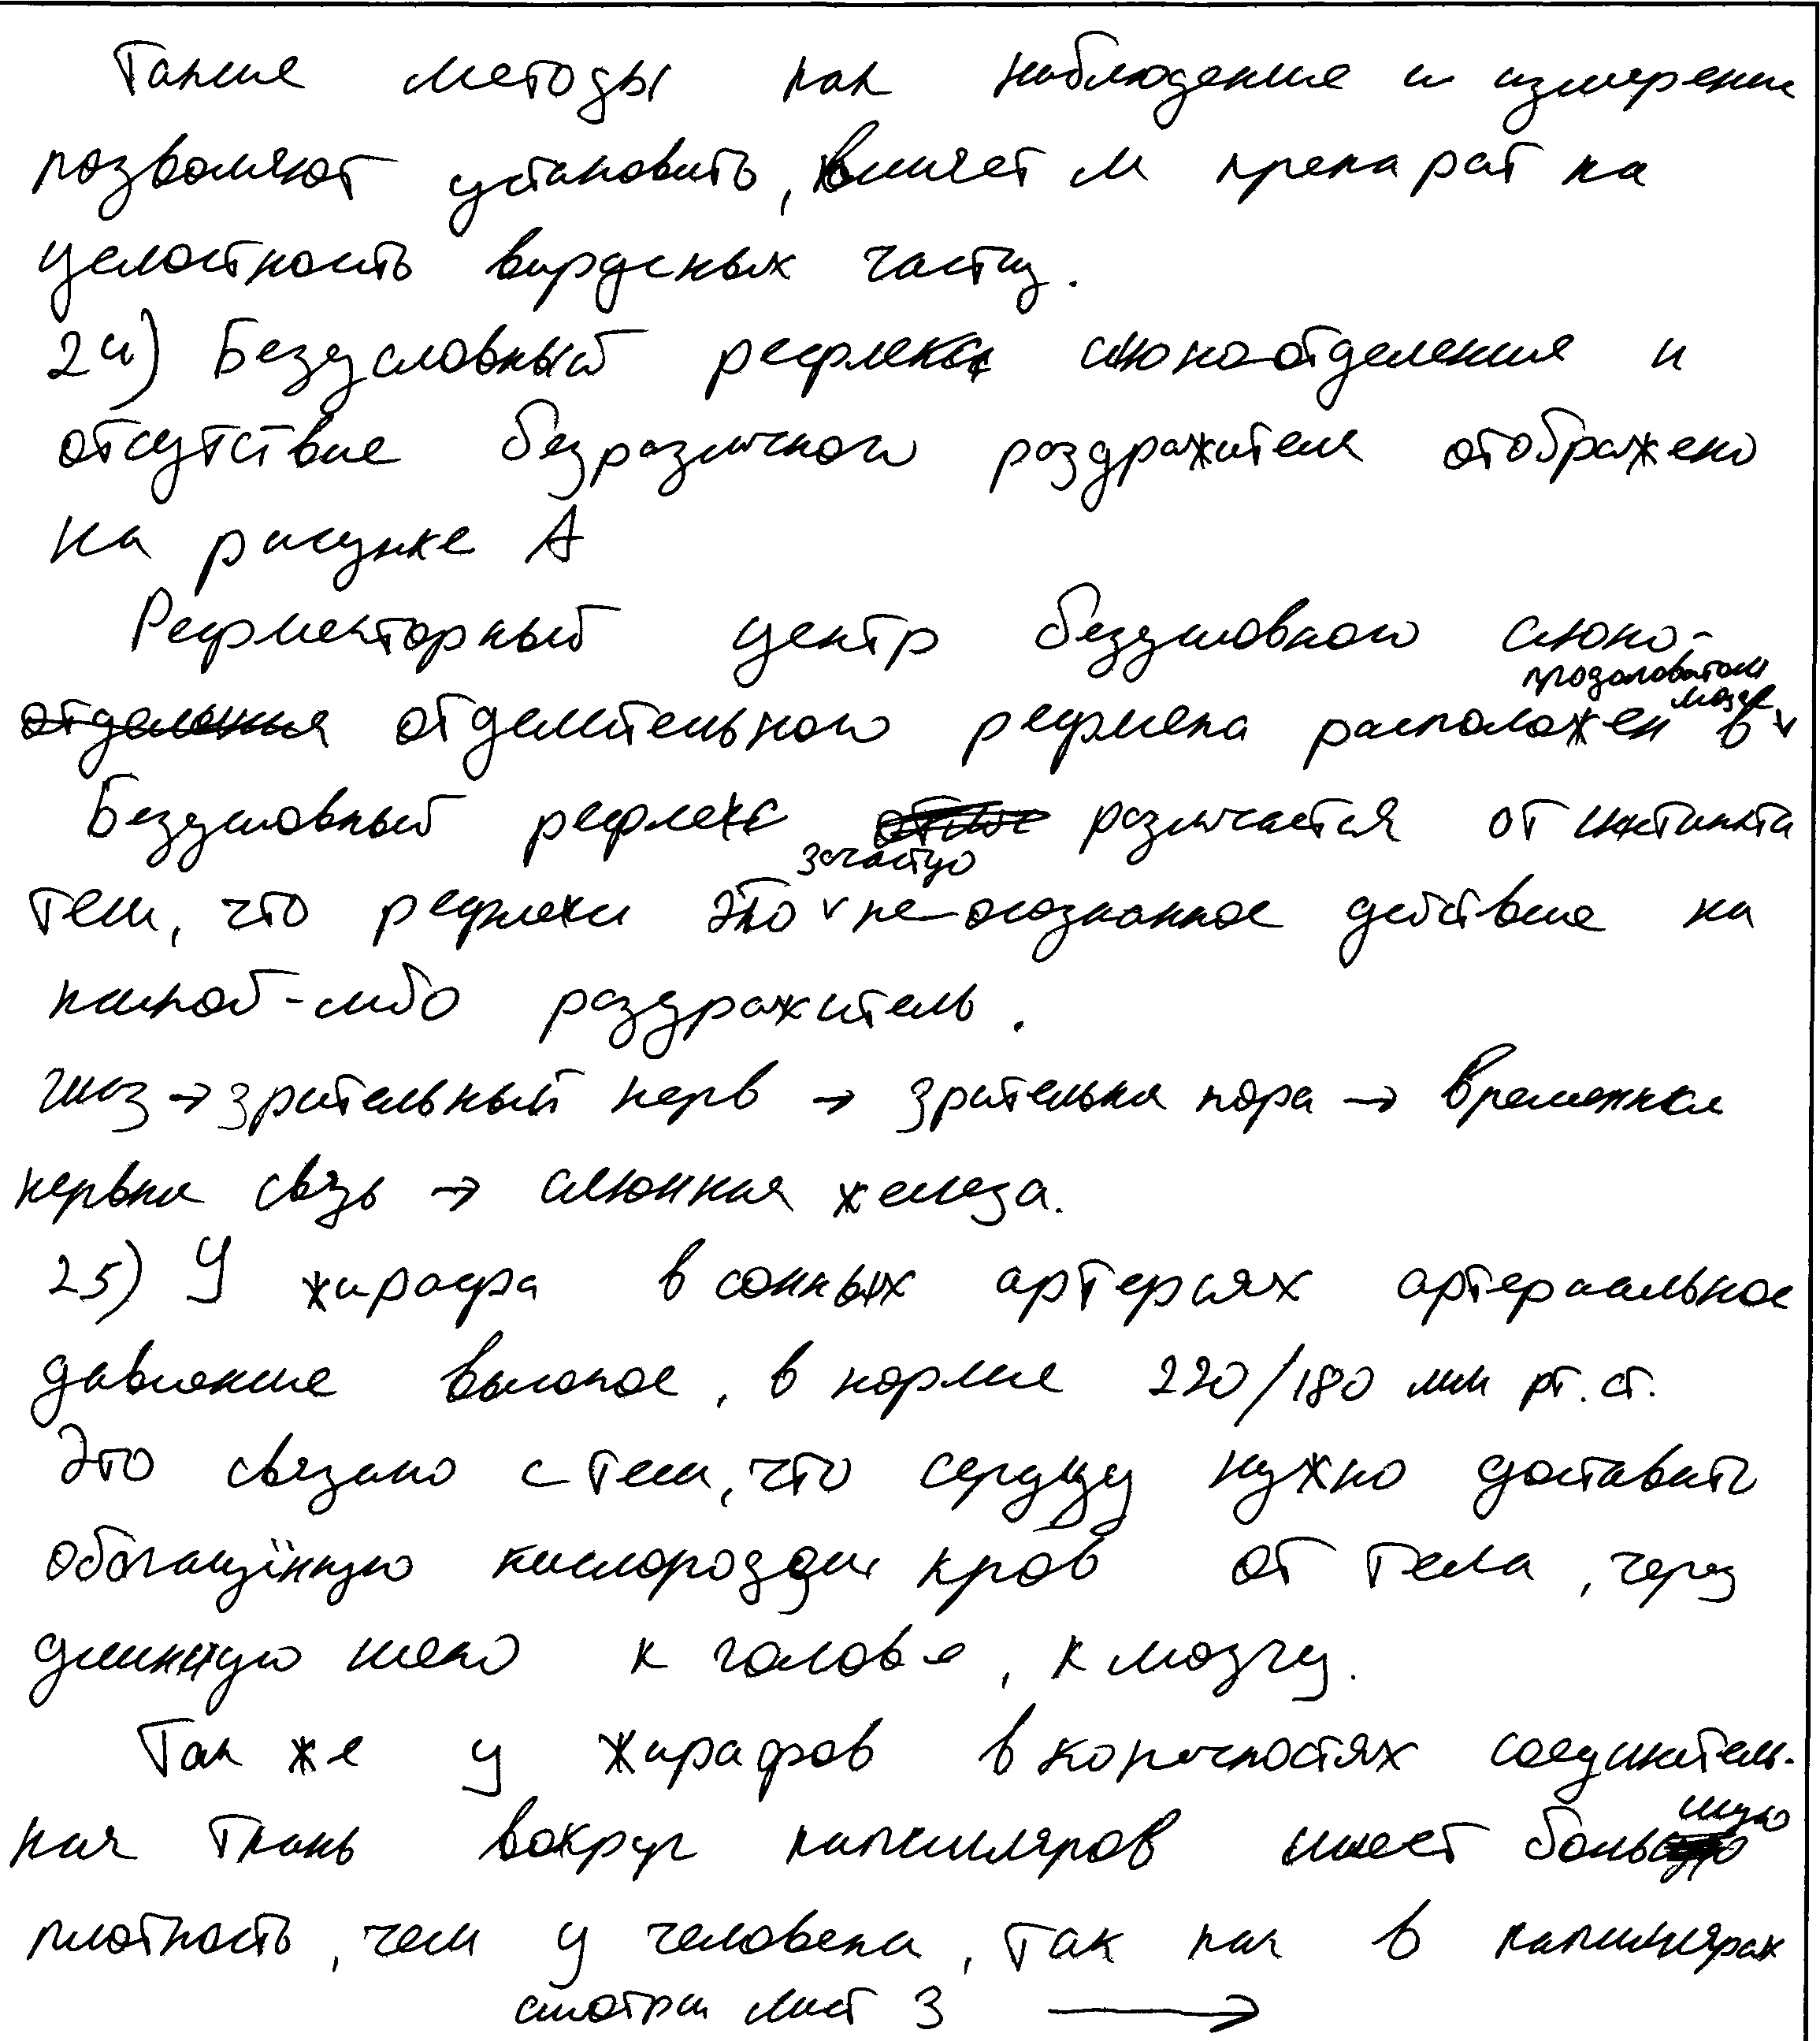 Такие методы как наблюдение и измерение
позволяют установить, влияет ли препарат на
целостность вирусных частиц.
24) Безусловный рефлекс слюноотделения и
отсутствие безразличного раздражителя отображено
на рисунке А
Рефлекторный центр безусловного слюно-
продолговатом
мозге
отделения отделительного рефлекса расположен в
Безусловный рефлекс различается от инстинкта
зачастую
тем, что рефлексы это не-осознанное действие на
какой-либо раздражитель.
глаз → зрительный нерв → зрительная кора → временная
нервная связь → слюнная железа.
25) У жирафа в сонных артериях артериальное
давление высокое, в норме 220/180 мм рт. ст.
Это связано с тем, что сердцу нужно доставить
обогащённую кислородом кровь от тела, через
длинную шею к голове, к мозгу.
Так же у жирафов в конечностях соединитель-
шую
ная ткань вокруг капилляров имеет боль
плотность, чем у человека, так как в капиллярах
смотри лист 3 →